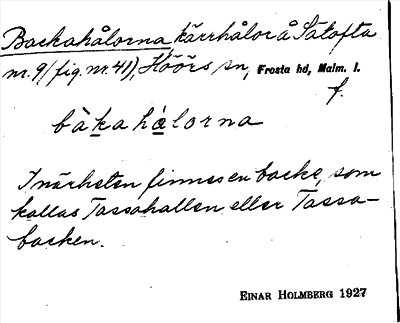 Backahålorna kärrhålor å Sätofta
nr. 9 (fig. nr. 41), Höörs sn, Frosta hd, Malm. l.
f.
bàkahàlorna
I närheten finnes en backe, som
kallas Tassahallen eller Tassa-
backen.
EINAR HOLMBERG 1927